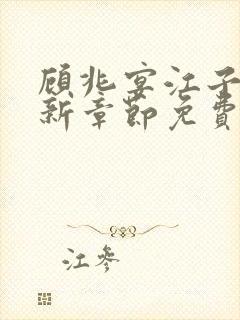 顾兆宴江子
新章节免费
江参